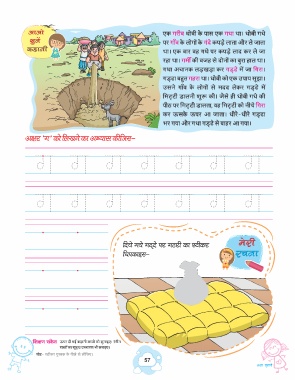 आओ
सुनें
कहानी
एक गरीब धोबी के पास एक गधा था। धोबी गधे
पर गाँव के लोगों के गंदे कपड़े लाता और ले जाता
था। एक बार वह गधे पर कपड़े लाद कर ले जा
रहा था। गर्मी की वजह से दोनों का बुरा हाल था।
गधा अचानक लड़खड़ा कर गड्ढे में जा गिरा।
गड्ढा बहुत गहरा था। धोबी को एक उपाय सूझा।
उसने गाँव के लोगों से मदद लेकर गड्ढे में
मिट्टी डालनी शुरू की। जैसे ही धोबी गधे की
पीठ पर मिट्टी डालता, वह मिट्टी को नीचे गिरा
कर उसके ऊपर आ जाता। धीरे-धीरे गड्ढा
भर गया और गधा गड्ढे से बाहर आ गया।
अक्षर 'ग' को लिखने का अभ्यास कीजिए-
दिये गये गद्दे पर गठरी का स्टीकर
चिपकाइए-
मेरी
रचना
शिक्षण संकेत
57